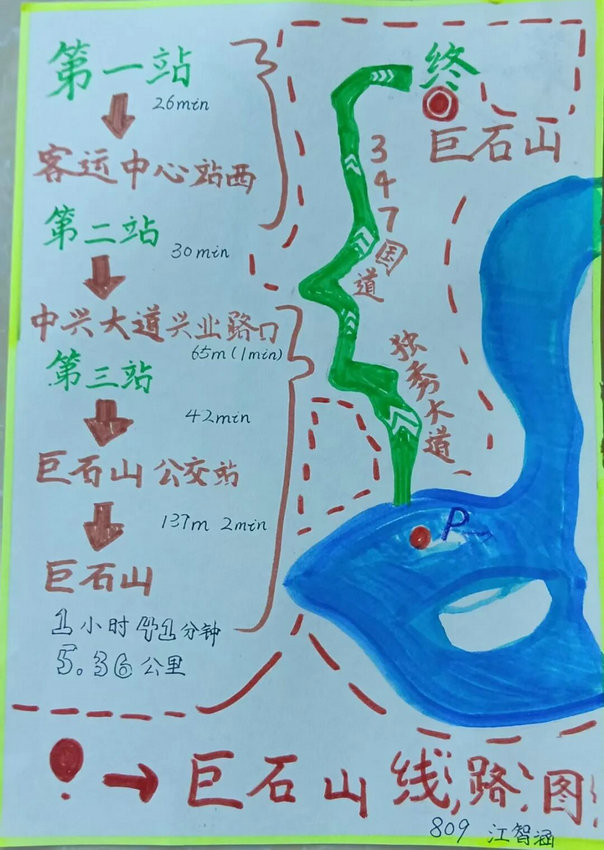 第一站
26min
客运中心站西
第二站
30min
中兴大道兴业路口
65m(1min)
第三站
42min
巨石山公交站
137m 2min
巨石山
1小时41分钟
5.36公里
终
巨石山
347国道
独秀大道
P
巨石山线路图
809 江智涵